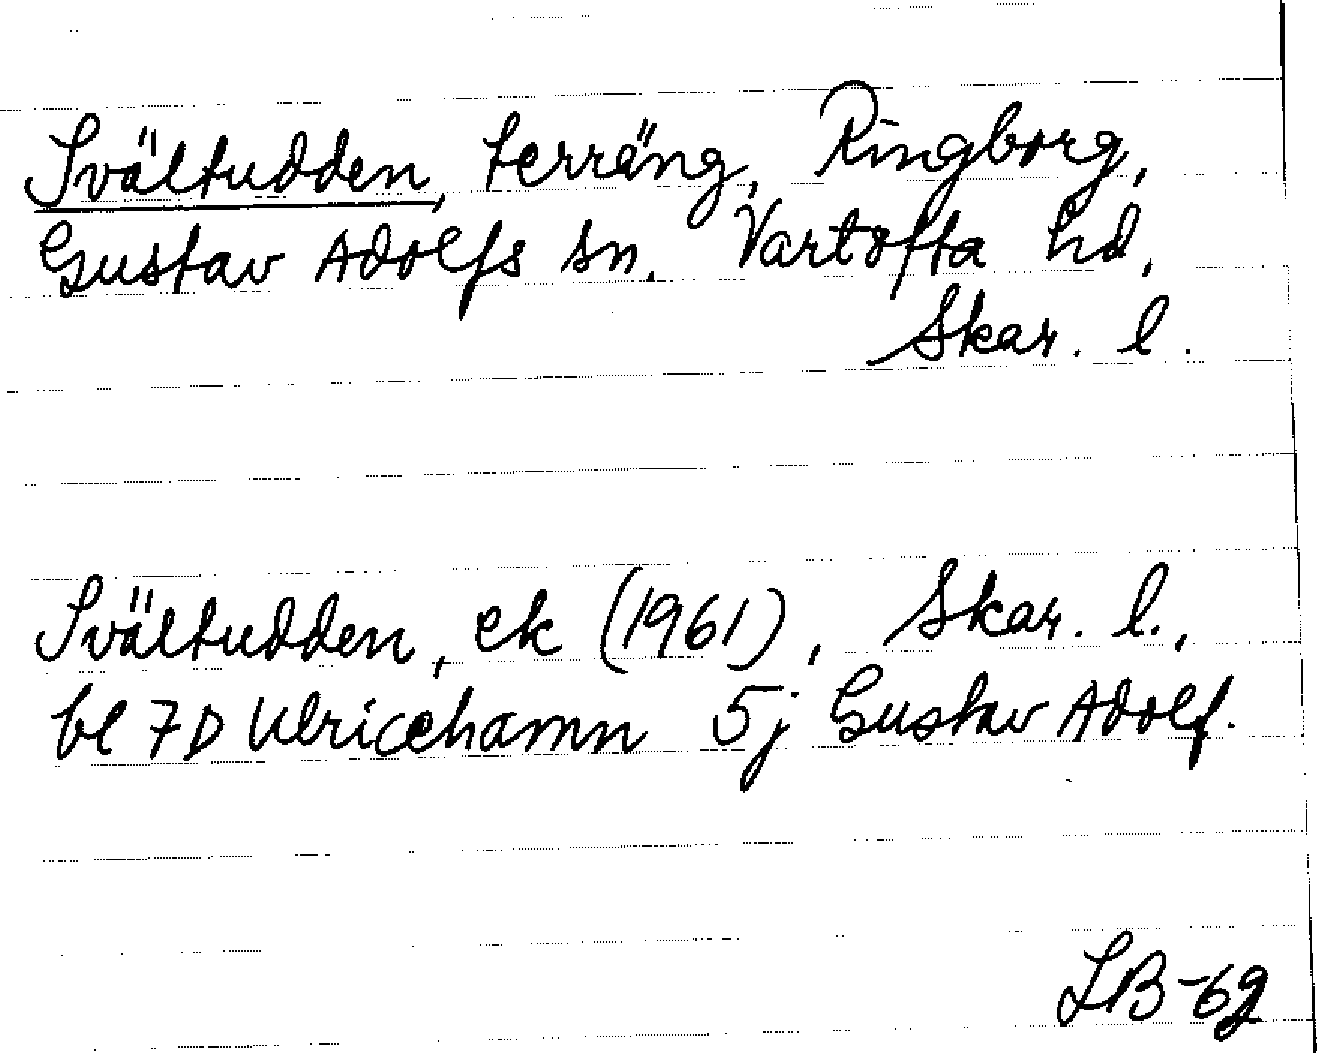 Svältudden, terräng, Ringborg,
Gustav Adolfs sn, Vartofta hd,
Skar. l.
Svältudden, ek (1961), Skar. l.,
bl 7D Ulricehamn 5j Gustav Adolf.
LB-69